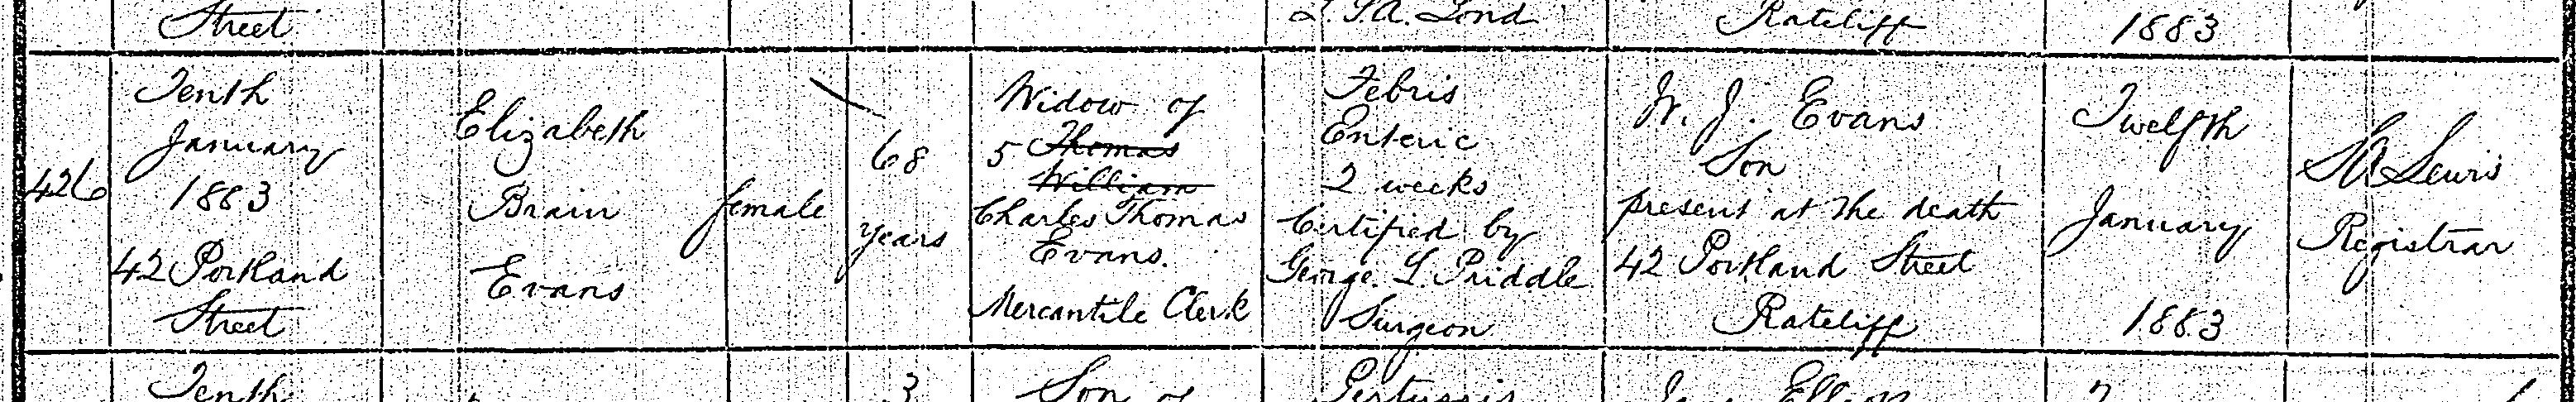 Street
L.S.A. Lond
Ratcliff
1883
426
Tenth
January
1883
42 Portland
Street
Elizabeth
Brain
Evans
female
68
years
Widow of
5 Thomas
William
Charles Thomas
Evans.
Mercantile Clerk
Febris
Enteric
2 weeks
Certified by
George. L. Priddle
Surgeon
W. J. Evans
Son
present at the death
42 Portland Street
Ratcliff
Twelfth
January
1883
Lewis
Registrar
Tenth
3
Son of
Pertussis